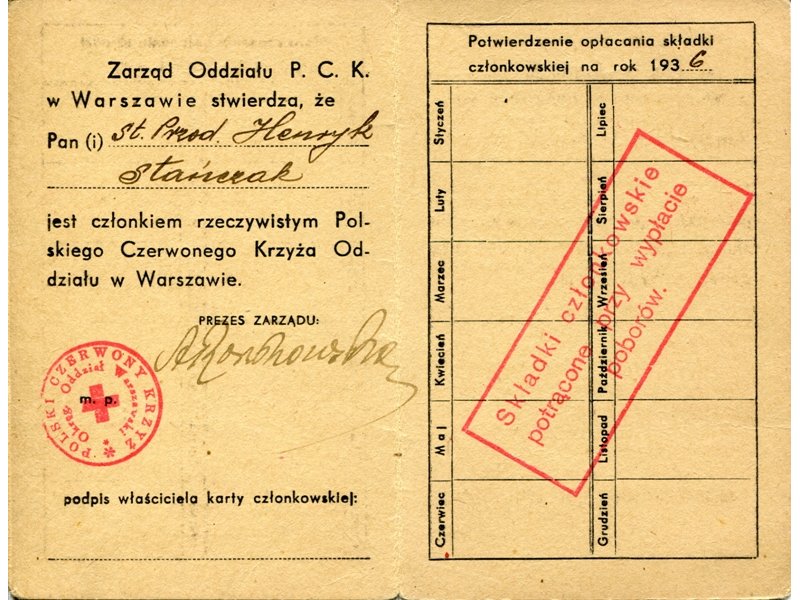 Zarząd Oddziału P. C. K.
w Warszawie stwierdza, że
Pan (i) st. Przod. Henryk
Stańczak
jest członkiem rzeczywistym Pol-
skiego Czerwonego Krzyża Od-
działu w Warszawie.
PREZES ZARZĄDU:
POLSKI CZERWONY KRZYŻ
Okrąg Oddział Warszawski
m. p.
podpis właściciela karty członkowskiej:
Potwierdzenie opłacania składki
członkowskiej na rok 1936
Styczeń
Luty
Marzec
Kwiecień
Maj
Czerwiec
Lipiec
Sierpień
Wrzesień
Październik
Listopad
Grudzień
Składki członkowskie
potrącone przy wypłacie
poborów.